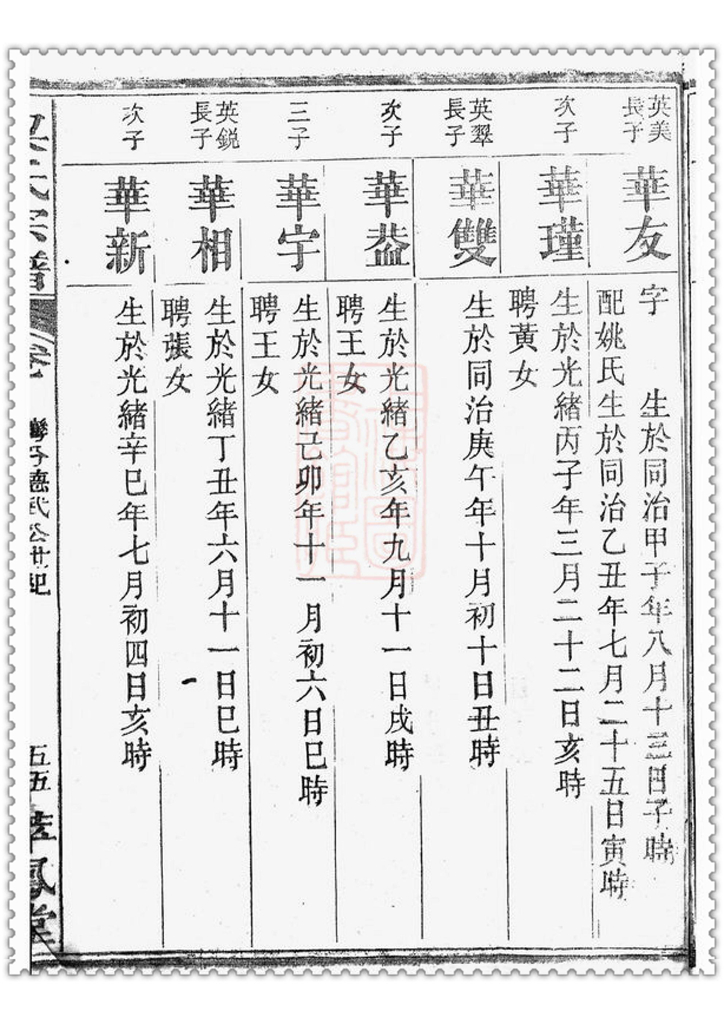 英美
長子
華友
字 生於同治甲子年八月十三日子時
配姚氏生於同治乙丑年七月二十五日寅時
次子
華瑾
生於光緒丙子年三月二十二日亥時
聘黃女
英翠
長子
華雙
生於同治庚午年十月初十日丑時
次子
華益
生於光緒乙亥年九月十一日戌時
聘王女
三子
華宇
生於光緒己卯年十一月初六日巳時
聘王女
英銳
長子
華相
生於光緒丁丑年六月十一日巳時
聘張女
次子
華新
生於光緒辛巳年七月初四日亥時
氏宗譜
卷
德武公世紀
五五
鳳堂